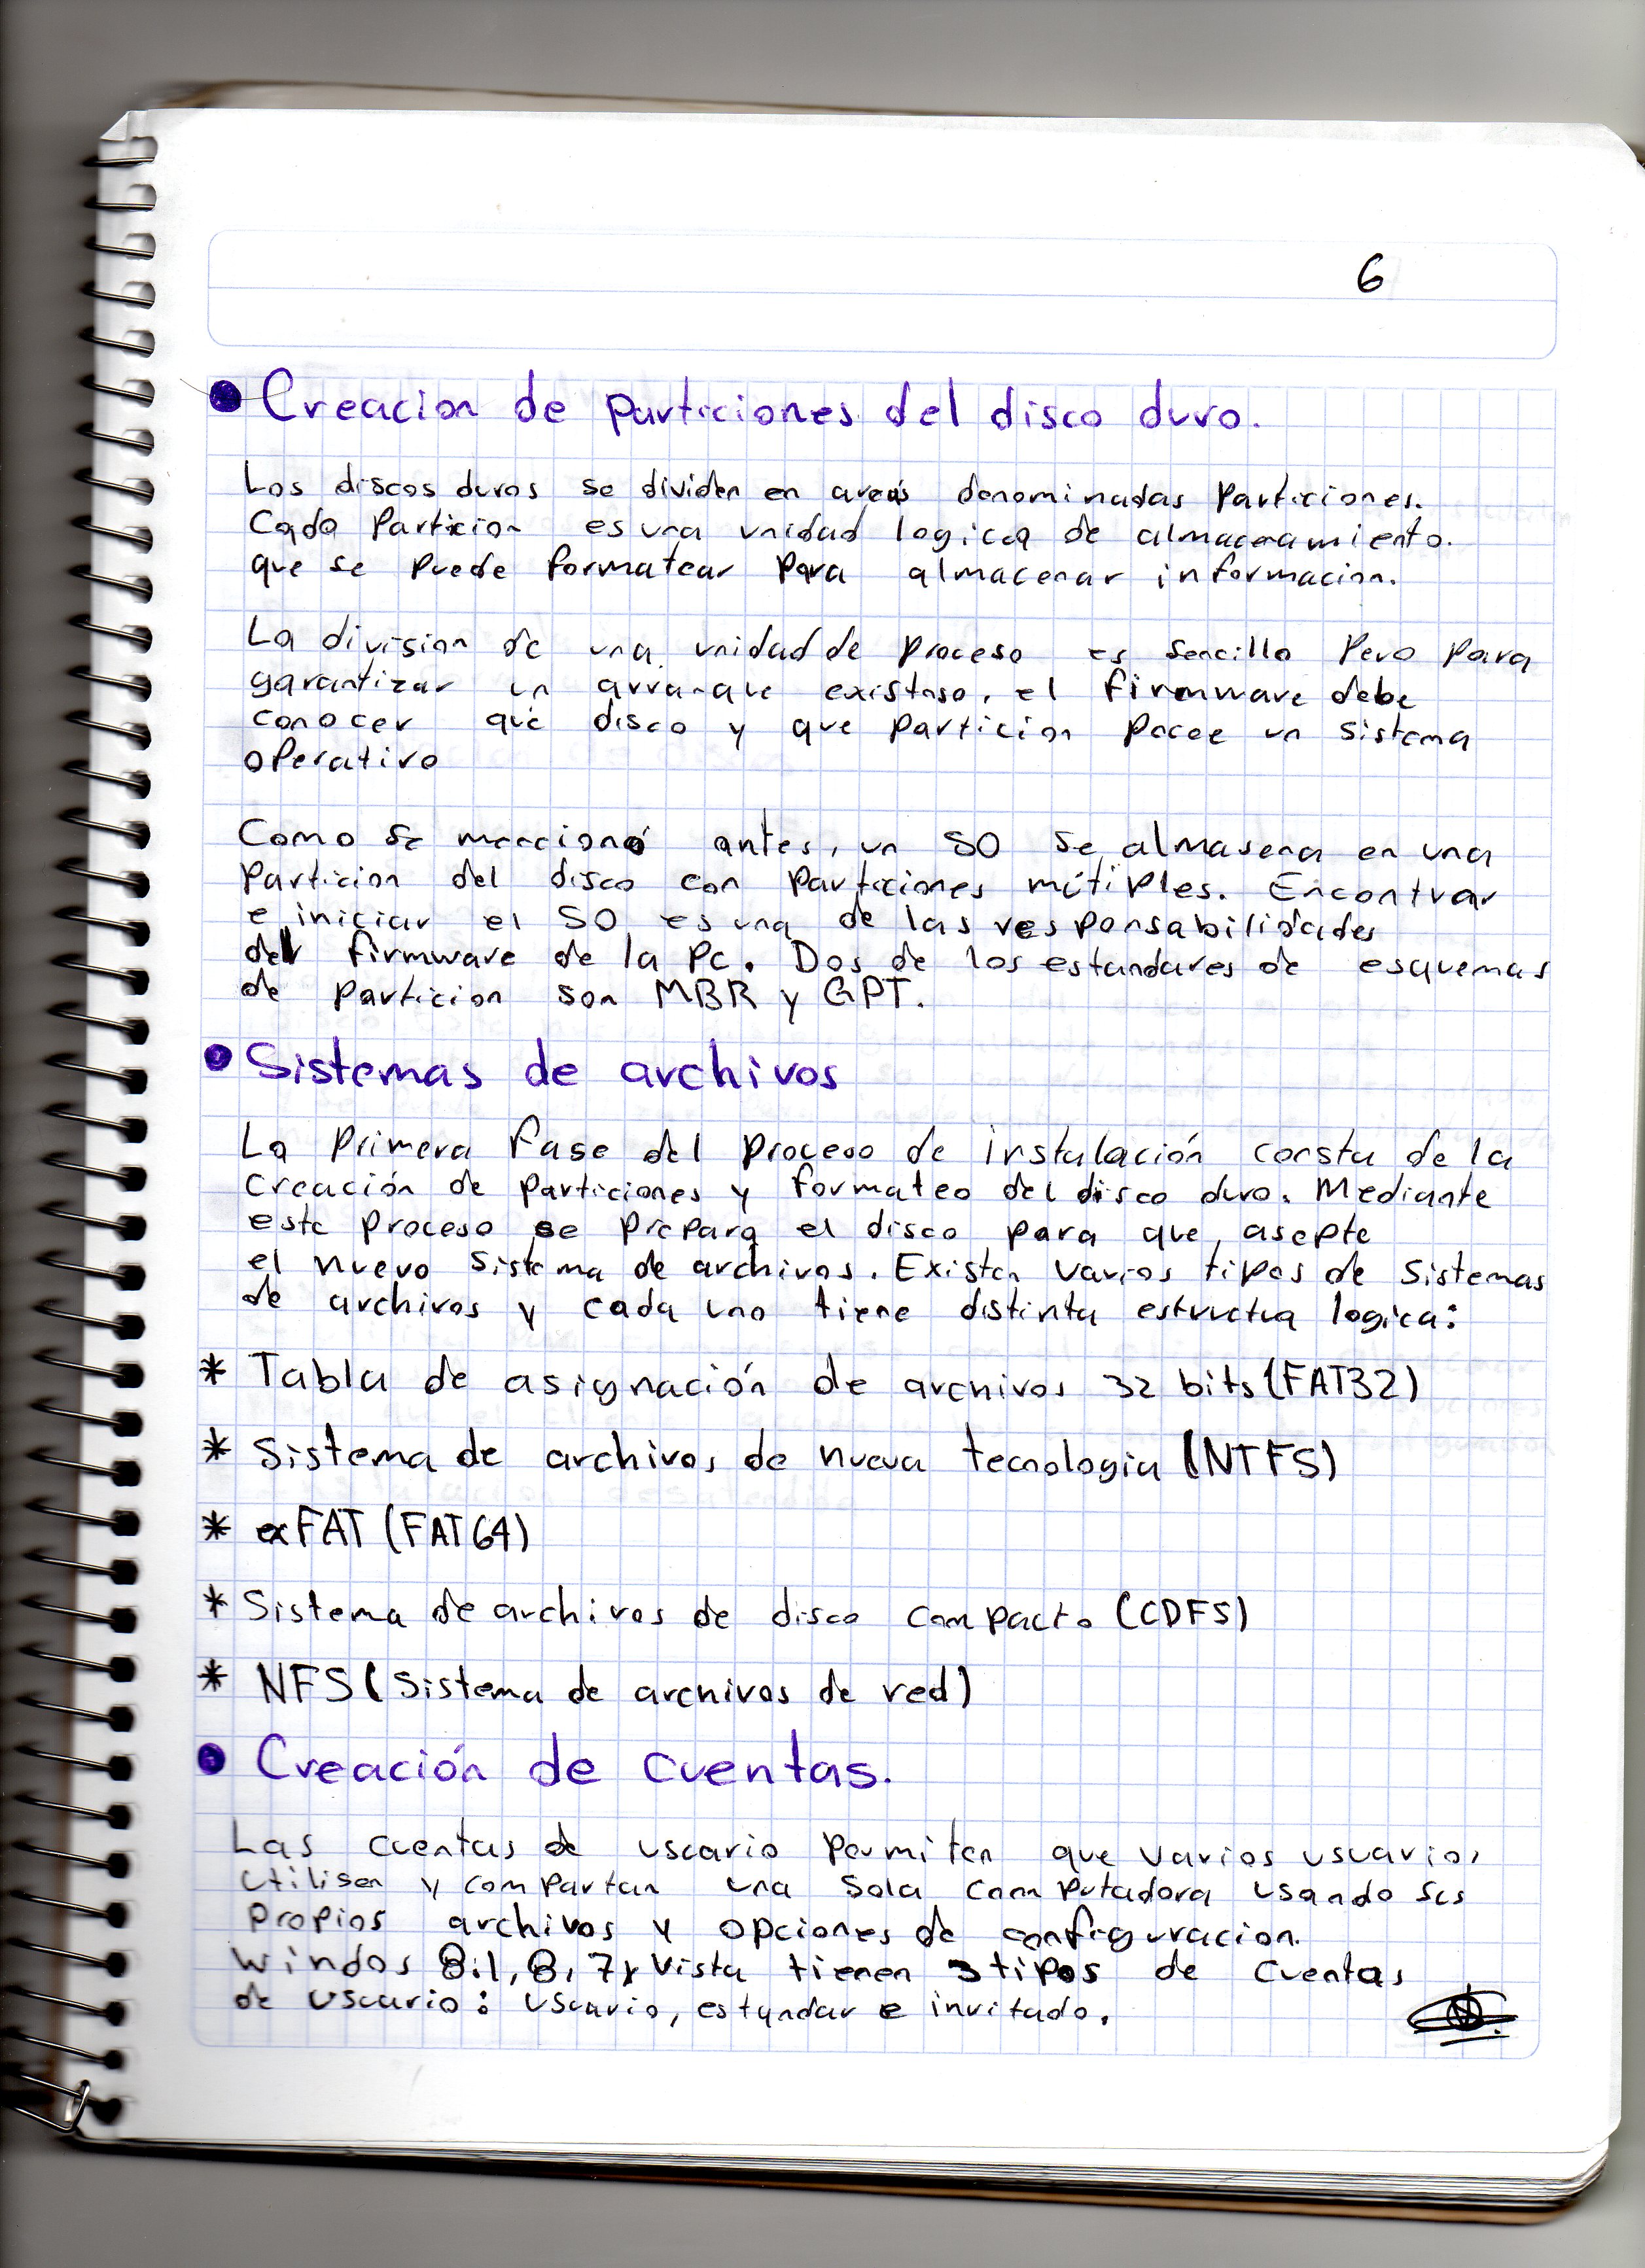 6
● Creacion de particiones del disco duro.
Los discos duros se dividen en areas denominadas particiones.
Cada Particion es una unidad logica de almacenamiento.
que se puede formatear para almacenar informacion.
La division de una unidad de proceso es sencillo Pero para
garantizar un arranque existoso, el firmware debe
conocer qué disco y que particion pocee un sistema
operativo
Como se mencionó antes, un SO se almasena en una
particion del disco con particiones mútiples. Encontrar
e iniciar el SO es una de las responsabilidades
del firmware de la Pc. Dos de los estandares de esquemas
de particion son MBR y GPT.
● Sistemas de archivos
La Primera fase del proceso de instalación consta de la
Creación de particiones y formateo del disco duro. Mediante
este proceso se prepara el disco para que asepte
el nuevo sistema de archivos. Existen varios tipos de Sistemas
de archivos y cada uno tiene distinta estructua logica:
* Tabla de asignación de archivos 32 bits (FAT32)
* Sistema de archivos de nueva tecnologia (NTFS)
* exFAT (FAT64)
* Sistema de archivos de disco compacto (CDFS)
* NFS (Sistema de archivos de red)
● Creación de cuentas.
Las cuentas de usuario permiten que varios usuarios
utilisen y compartan una sola computadora usando sus
propios archivos y opciones de configuracion.
Windos 8.1, 8, 7 y Vista tienen 3 tipos de cuentas
de usuario: usuario, estandar e invitado.